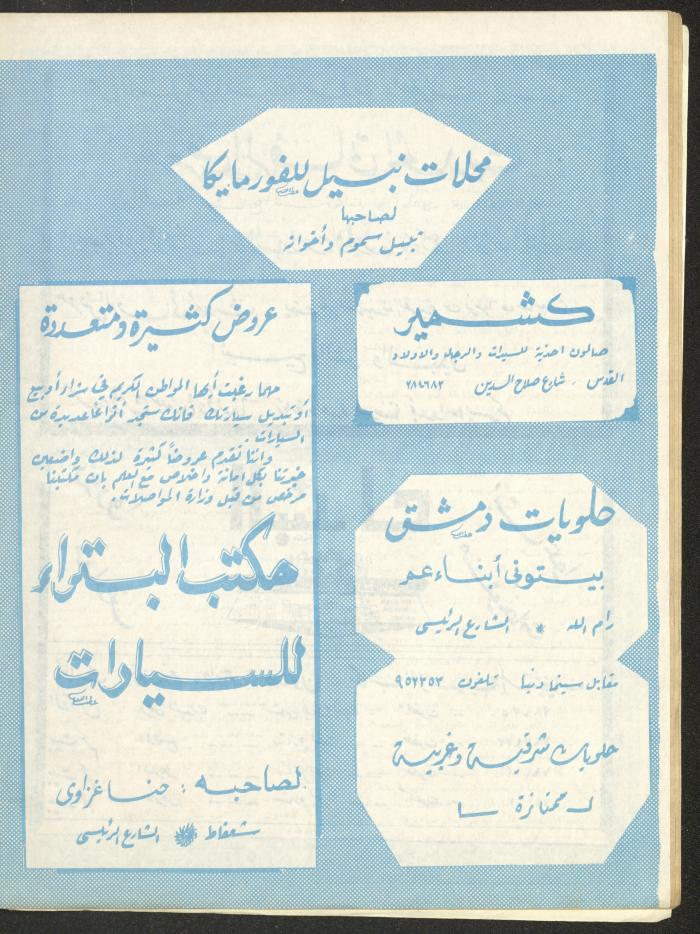 محلات نبيل للفورمايكا
لصاحبها
نبيل سموم وأخوانه
كشمير
صالون احذية للسيدات والرجال والاولاد
القدس . شارع صلاح الدين ٢٨٤٦٨٢
عروض كثيرة ومتعددة
مهما رغبت أيها المواطن الكريم في شراء أو بيع
أو تبديل سيارتك فانك ستجد أنواعا عديدة من
السيارات
واننا نقدم عروضاً كثيرة لذلك واضعين
خبرتنا بكل امانة واخلاص مع العلم بان مكتبنا
مرخص من قبل وزارة المواصلات.
مكتب البتراء
للسيارات
لصاحبه : حنا عزاوي
شعفاط * الشارع الرئيسي
حلويات دمشق
بيتوني أبناء عم
رام الله * الشارع الرئيسي
مقابل سينما دنيا تلفون ٩٥٢٣٥٣
حلويات شرقية وغربية
ممتازة